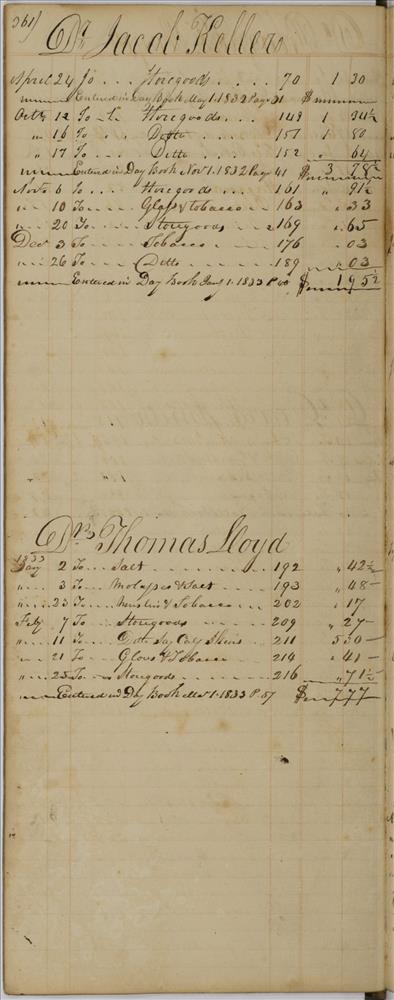 361
Dr. Jacob Keller
April 24 To .... Storegoods .... 70 1 30
Entered in Day Book May 1. 1832 Page 31 $
Octr 12 To .... Storegoods ... 149 1 34½
" 16 To . Ditto ... 151 1 80
" 17 To .. Ditto ... 152 " 64
Entered in Day Book Nov 1. 1832 Page 41 $ 3 78½
Novr 6 To ... Storegoods ... 161 " 91½
" 10 To ... Glass & tobacco .. 163 " 33
" 20 To ... Storegoods .... 169 " 65
Decr 3 To ... Tobacco .... 176 " 03
" 26 To ... Ditto .... 189 " 03
Entered in Day Book Jany 1. 1833 P $ 1 95½
Dr. Thomas Lloyd
1833
Jany 2 To .... Salt .... 192 " 42½
" 3 To ... Molasses & Salt ... 193 " 48
" 23 To ... Muslin & Tobacco ... 202 " 17
Feby 7 To .... Storegoods .... 209 " 27
" 11 To .... Calf Skins .. 211 5 30
" 21 To ... Gloves & Tobacco 214 " 41
" 25 To .. Storegoods .... 216 " 71½
Entered in Day Book Mar 1. 1833 P. 57 $ 7 77